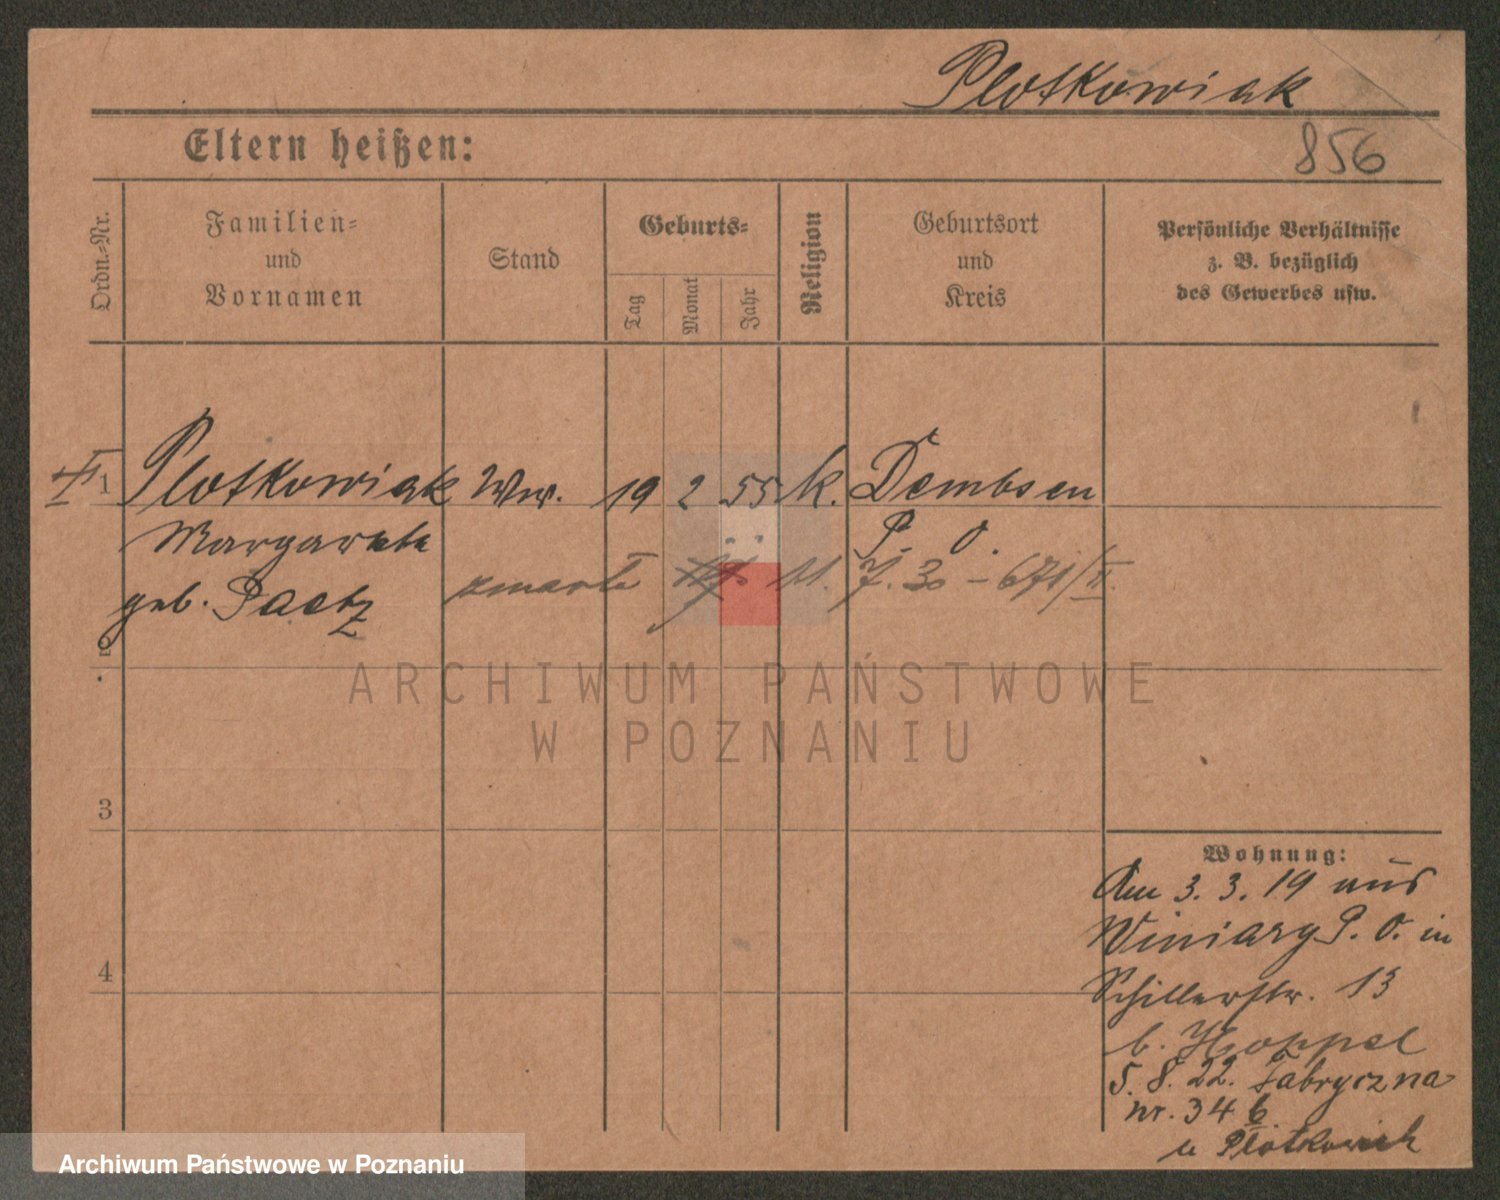 Plotkowiak
856
Eltern heißen:
Ordn.-Nr.
Familien-
und
Vornamen
Stand
Geburts-
Tag
Monat
Jahr
Religion
Geburtsort
und
Kreis
Persönliche Verhältnisse
z. B. bezüglich
des Gewerbes usw.
1 Plotkowiak Ww. 19 2 55 k. Dembsen
Margarete P. O.
geb. Paetz
zmarła 11. 7. 30 – 671/II.
ARCHIWUM PAŃSTWOWE
W POZNANIU
3
4
Wohnung:
Am 3. 3. 19 aus
Winiary P. O. in
Schillerstr. 13
b. Hoppel
5. 8. 22. Fabryczna
nr. 34 b
u Plotkowiak
Archiwum Państwowe w Poznaniu